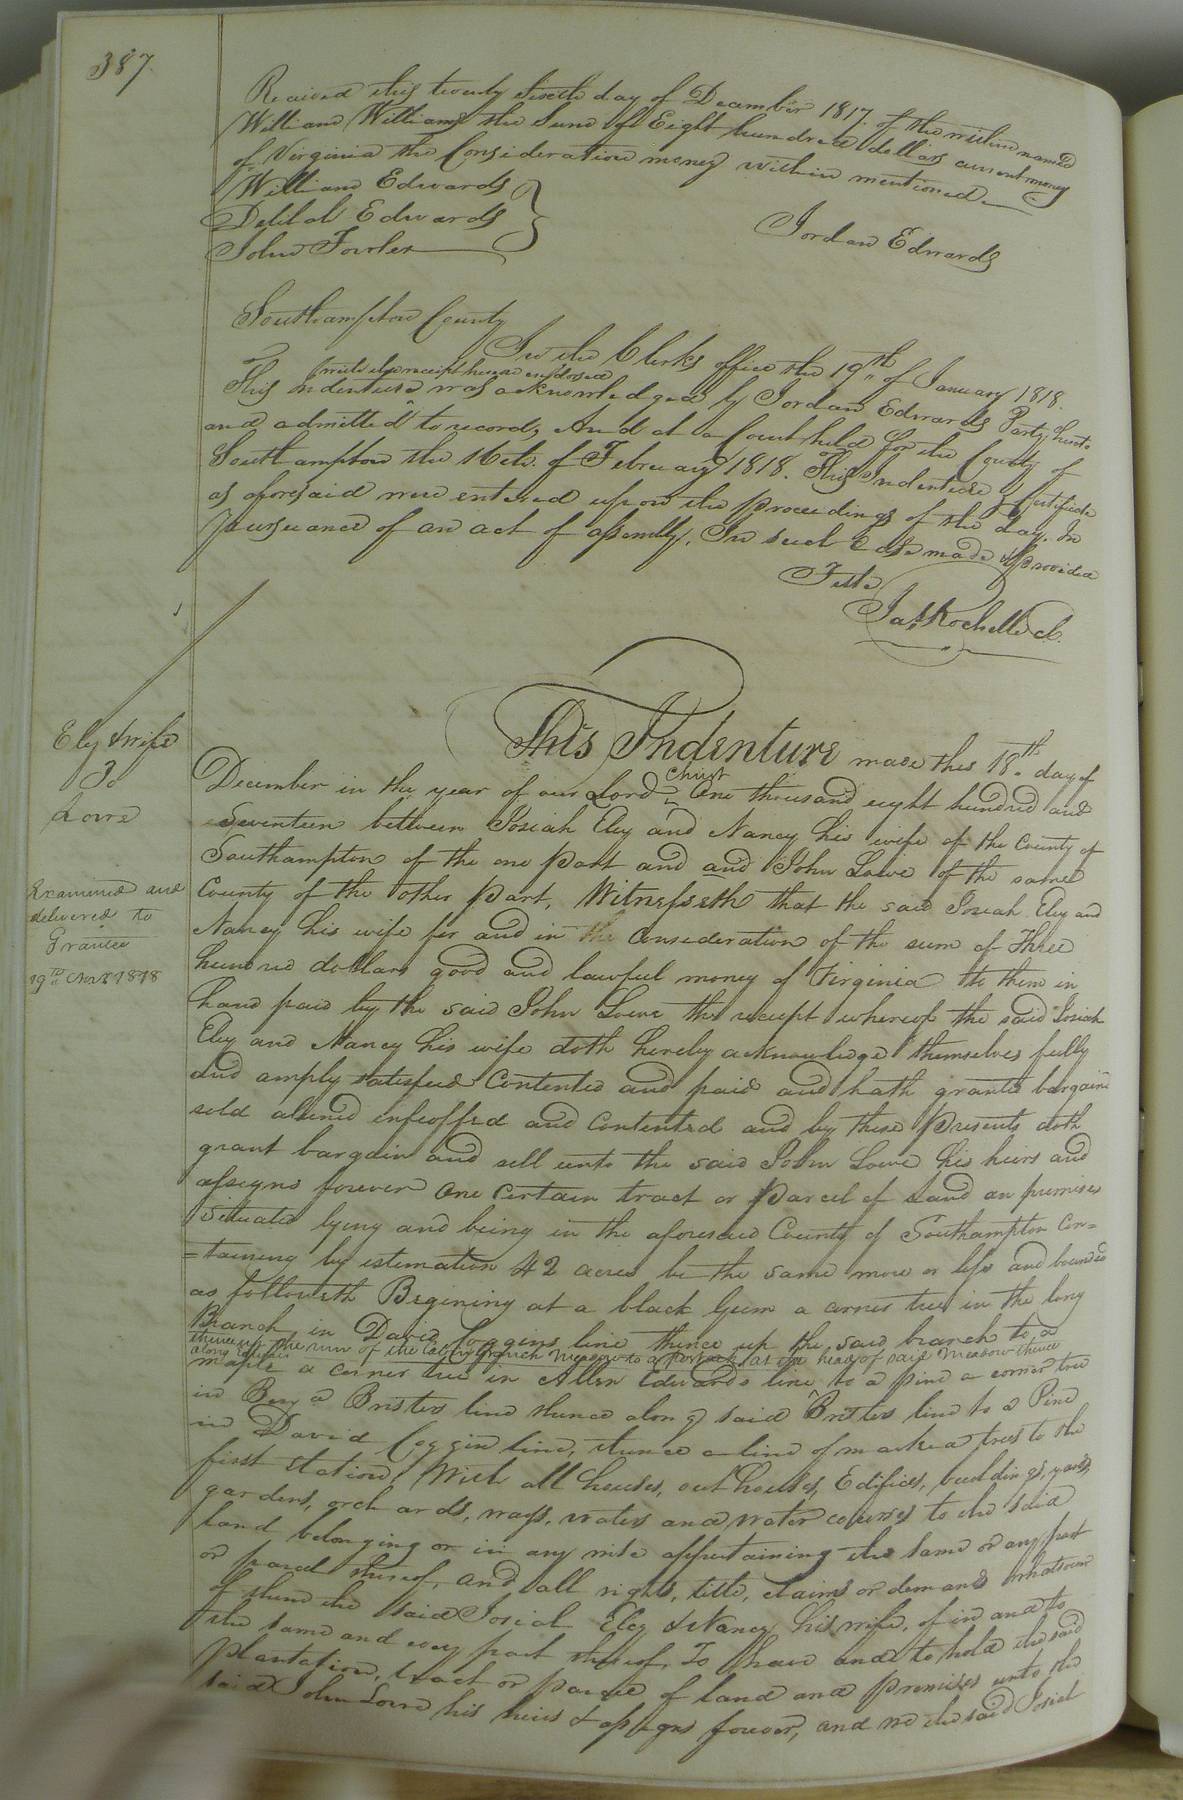 387
Received this twenty Sixth day of December 1817. of the within named
William Williams the Sum of Eight hundred dollars current money
of Virginia the Consideration money within mentioned
William Edwards
Delilah Edwards
John Fowler
Jordan Edwards
Southampton County
In the Clerks office the 19th of January 1818.
with the receipt hereon endorsed
This indenture was acknowledged by Jordan Edwards Party hereto
and admitted to record, And at a Court held for the County of
Southampton the 16th. of February 1818. This Indenture & Certificate
as aforesaid were entered upon the proceedings of the day. In
pursuance of an act of assembly, In such case made & provided
Teste
Jas Rochelle cl.
Ely & wife
To
Lowe
Examined and
delivered to
Grantee
19th 1818
This Indenture made this 18th day of
December in the year of our Lord Christ One thousand eight hundred and
Seventeen between Josiah Eley and Nancy his wife of the County of
Southampton of the one part and and John Lowe of the same
County of the other part, Witnesseth that the said Josiah Eley and
Nancy his wife for and in the Consideration of the sum of Three
hundred dollars good and lawful money of Virginia to them in
hand paid by the said John Lowe the receipt whereof the said Josiah
Eley and Nancy his wife doth hereby acknowledge themselves fully
and amply satisfied Contented and paid and hath granted bargaind
sold aliend infeoffed and Contented and by these presents doth
grant bargain and sell unto the said John Lowe his heirs and
assigns forever One Certain tract or parcel of Land an premises
situated lying and being in the aforesaid County of Southampton Con=
=taining by estimation 42 acres be the same more or less and bounded
as followeth Begining at a black Gum a corner tree in the long
Branch in David Coggins line thence up the said branch to a
thence up the run of the branch Meadow to a at the head of said Meadow thence
along
maple a corner tree in Allen Edwards line to a pine a corner tree
in Benj a Bristers line thence along said Britles line to a Pine
in David Coggin line, thence a line of marked trees to the
first station, With all houses, out houses, Edifices, buildings, yards,
gardens, orchards, ways, waters and water courses to the said
land belonging or in any wise appertaining the same or any part
or parcel thereof, and all rights, title, claims or demands whatsoever
of them the said Josiah Eley & Nancy his wife, of in and to
the same and every part thereof, To have and to hold the said
plantation, tract or parcel of land and premises unto the
said John Lowe his heirs & assigns forever, and we the said Josiah